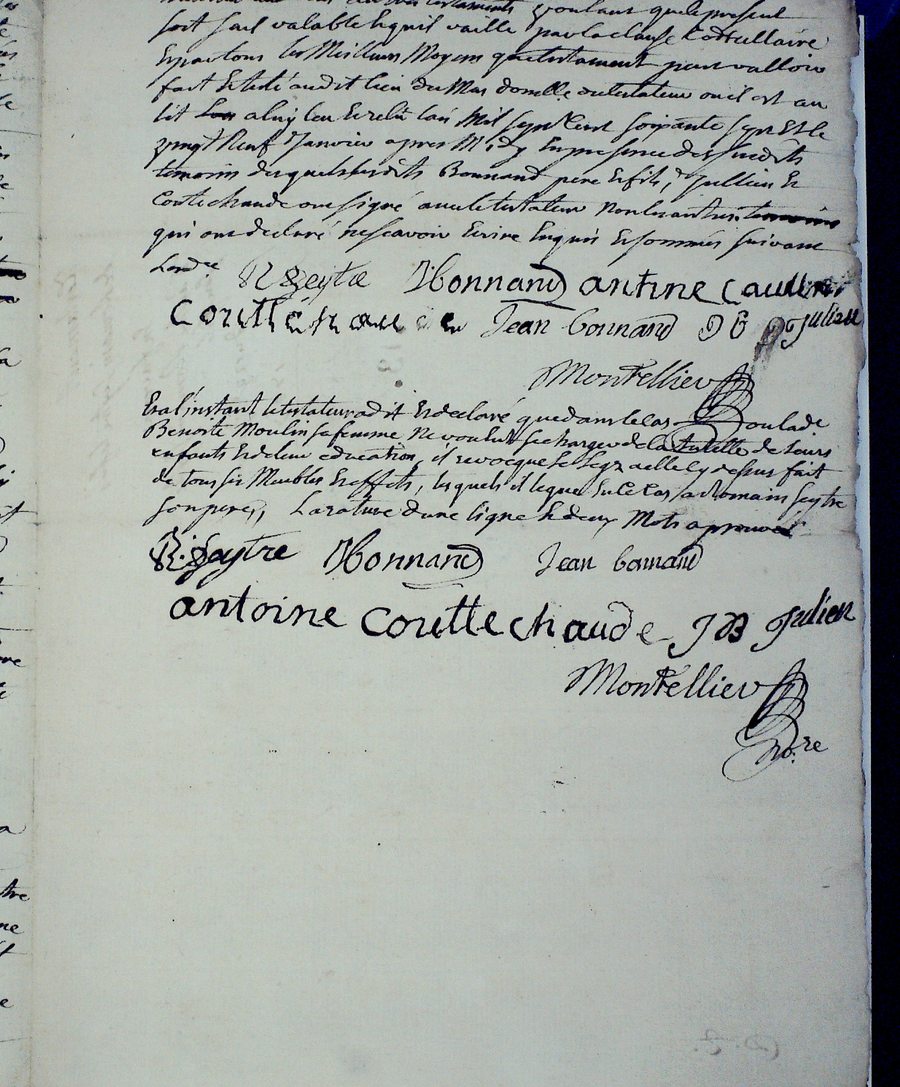 testaments voulant que le present
soit seul valable & quil vaille par la clause Codicillaire
Et par tous les Meilleurs Moyens que testament peut valloir
fait & récité audit lieu du Mas domille du testateur ou il est au
lit Mil sept Cent soixante sept & le
vingt Neuf Janvier apres Midy En presence des susdits
temoins desquels lesdits Bonnand pere & fils, Jullien &
Couttechaude ont signé avec le testateur Non les autres temoins
qui ont declaré ne scavoir Ecrire Enquis & sommés suivant
Lordce
R Seytre JBonnand antine
Couttechaude Jean bonnand J B Julien
Montellier
Et a l'instant le testateur a dit & declaré que dans le cas ou lade
Benoite Moulin sa femme Ne voulut se charger de la tutelle de leurs
enfants & de leur education, il revocque le legz a elle cy dessus fait
de tous ses Meubles & effets, lesquels il legue en ce cas a Romain Seytre
son pere, La rature d'une ligne & deux Mots approuvée
R. Seytre JBonnand Jean bonnand
antoine Couttechaude J B Julien
Montellier
No.re